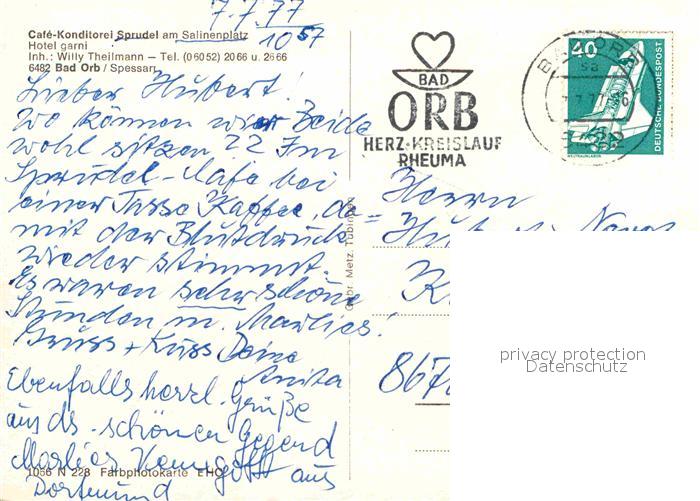 7.7.77
10 57
Café-Konditorei Sprudel am Salinenplatz
Hotel garni
Inh.: Willy Theilmann – Tel. (06052) 2066 u. 2666
6482 Bad Orb / Spessart
Lieber Hubert!
Wo können wir Beide
wohl sitzen ?? Im
Sprudel-Kafe bei
einer Tasse Kaffee, da=
mit der Blutdruck
wieder stimmt.
Es waren sehr schöne
Stunden m. Marlies!
Gruss + Kuss Deine
Anita
Ebenfalls herzl. Grüße
aus ds. schönen Gegend
Marlies aus
Dortmund
1056 N 228 Farbphotokarte EHO
Gebr. Metz, Tübingen
BAD
ORB
HERZ·KREISLAUF
RHEUMA
BAD ORB
40
DEUTSCHE BUNDESPOST
WELTRAUMLABOR
Herrn
867
privacy protection
Datenschutz